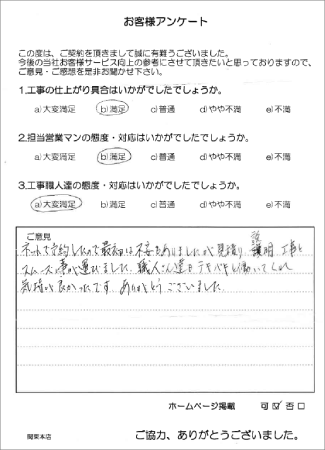 お客様アンケート
この度は、ご契約を頂きまして誠に有難うございました。
今後の当社お客様サービス向上の参考にさせて頂きたいと思っておりますので、
ご意見・ご感想を是非お聞かせ下さい。
1.工事の仕上がり具合はいかがでしたでしょうか。
a)大変満足 b)満足 c)普通 d)やや不満 e)不満
2.担当営業マンの態度・対応はいかがでしたでしょうか。
a)大変満足 b)満足 c)普通 d)やや不満 e)不満
3.工事職人達の態度・対応はいかがでしたでしょうか。
a)大変満足 b)満足 c)普通 d)やや不満 e)不満
ご意見
ネットで予約したので最初は不安もありましたが 見積り 説明 工事と
スムーズに事が運びました。職人さん達もテキパキと働いてくれ
気持が良かったです。ありがとうございました。
ホームページ掲載 可 ☑ 否 □
関東本店
ご協力、ありがとうございました。